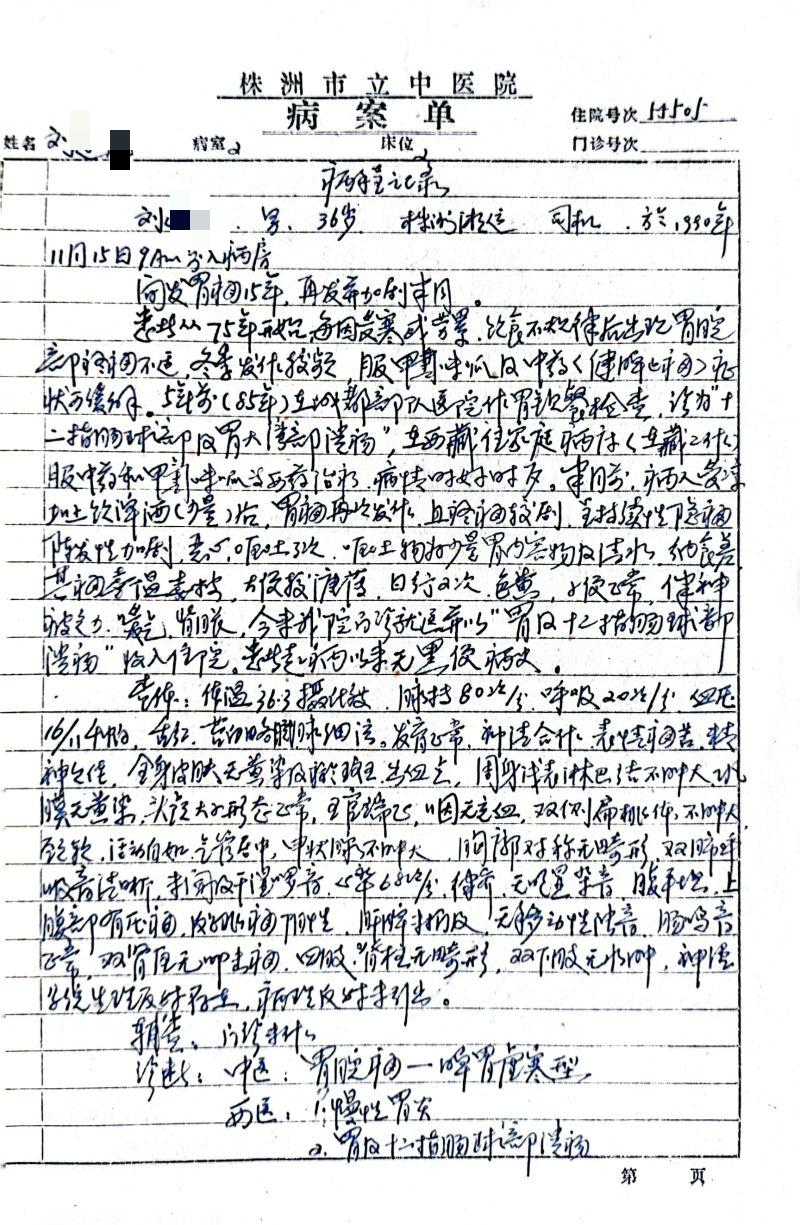 株洲市立中医院
病案单
住院号次 55505
姓名 刘 病室2 床位2 门诊号次
病程记录
刘 男 36岁 株洲 司机 于1990年
11月15日9Am 入病房
间发胃痛15年,再发并加剧半月。
患者从75年开始,每因受寒或劳累,饮食不规律后出现胃脘
部疼痛不适,冬季发作较频,服甲氰咪呱及中药<健脾止痛>症
状可缓解。5年前(85年)在成都部队医院作胃钡餐检查,诊为"十
二指肠球部及胃大湾部溃疡",在西藏住家庭病床(在藏工作)
服中药和甲氰咪呱等西药治疗,病情时好时歹。半月前,病人受凉
加上饮啤酒(少量)后,胃痛再次发作,且疼痛较剧,呈持续性隐痛
阵发性加剧,恶心,呕吐3次,呕吐物为少量胃内容物及清水,纳食差
其痛喜温喜按,大便较溏薄,日行2次,色黄,小便正常,伴神
疲乏力,嗳气,背胀,今来我院门诊就医并以"胃及十二指肠球部
溃疡"收入住院。患者起病以来无黑便病史。
查体:体温36.3摄氏度,脉搏80次/分,呼吸20次/分,血压
16/11千帕,舌红,苔白略腻脉细弦。发育正常,神清合作,表情痛苦,精
神欠佳,全身皮肤无黄染及瘀斑出血点,周身浅表淋巴结不肿大,巩
膜无黄染,头颅大小形态正常,五官端正,咽无充血,双侧扁桃体不肿大,
颈软,活动自如,气管居中,甲状腺不肿大,胸部对称无畸形,双肺呼
吸音清晰,未闻及干湿啰音,心率68次/分,律齐,无明显杂音,腹平坦,上
腹部有压痛,反跳痛阴性,肝脾未扪及,无移动性浊音,肠鸣音
正常,双肾区无叩击痛,四肢、脊柱无畸形,双下肢无水肿,神经
系统生理反射存在,病理反射未引出。
辅查:门诊未作
诊断:中医:胃脘痛—脾胃虚寒型
西医:1.慢性胃炎
2.胃及十二指肠球部溃疡
第 页